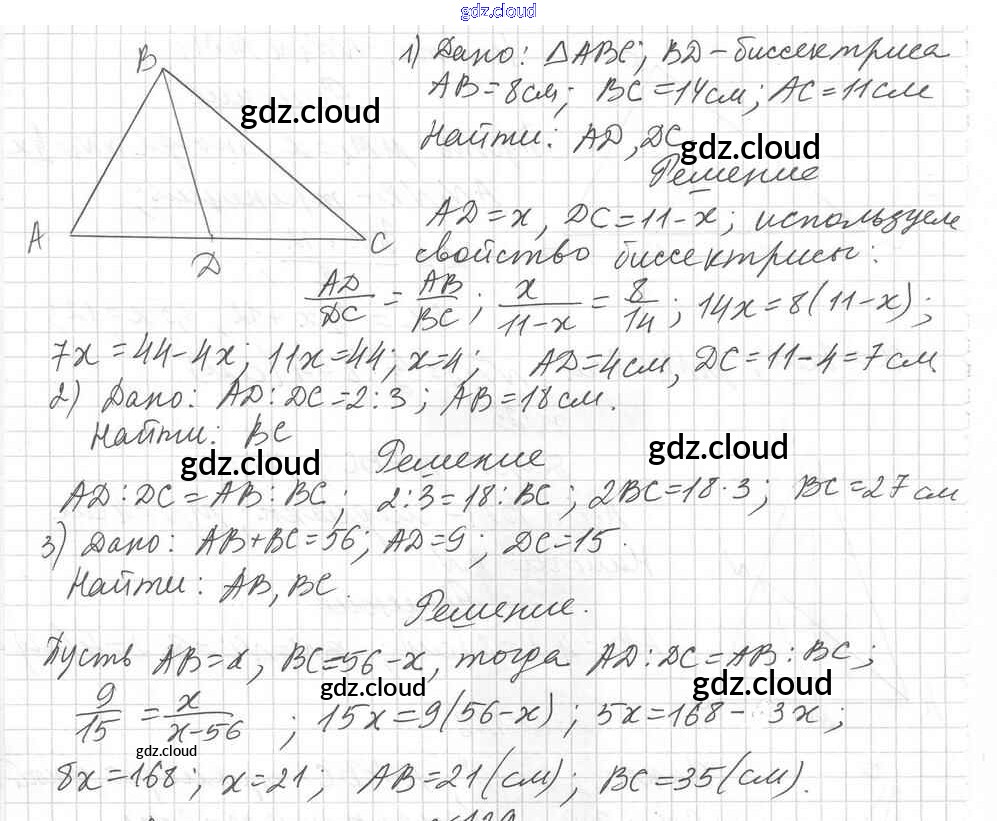 gdz.cloud
B
A
D
C
gdz.cloud
1) Дано: △ABC; BD – биссектриса
AB = 8см; BC = 14см; AC = 11см
Найти: AD, DC
gdz.cloud
Решение
AD = x, DC = 11 - x; используем
свойство биссектрисы:
AD/DC = AB/BC; x/11-x = 8/14; 14x = 8(11-x);
7x = 44-4x; 11x = 44; x=4; AD = 4см, DC = 11-4 = 7 см
2) Дано: AD:DC = 2:3; AB = 18 см.
Найти: BC
gdz.cloud
Решение
gdz.cloud
AD:DC = AB:BC; 2:3 = 18:BC; 2BC = 18·3; BC = 27 см
3) Дано: AB+BC = 56; AD = 9; DC = 15.
Найти: AB, BC.
Решение.
Пусть AB = x, BC = 56-x, тогда AD:DC = AB:BC;
gdz.cloud
gdz.cloud
9/15 = x/x-56; 15x = 9(56-x); 5x = 168 - 3x;
gdz.cloud
8x = 168; x = 21; AB = 21 (см); BC = 35 (см).